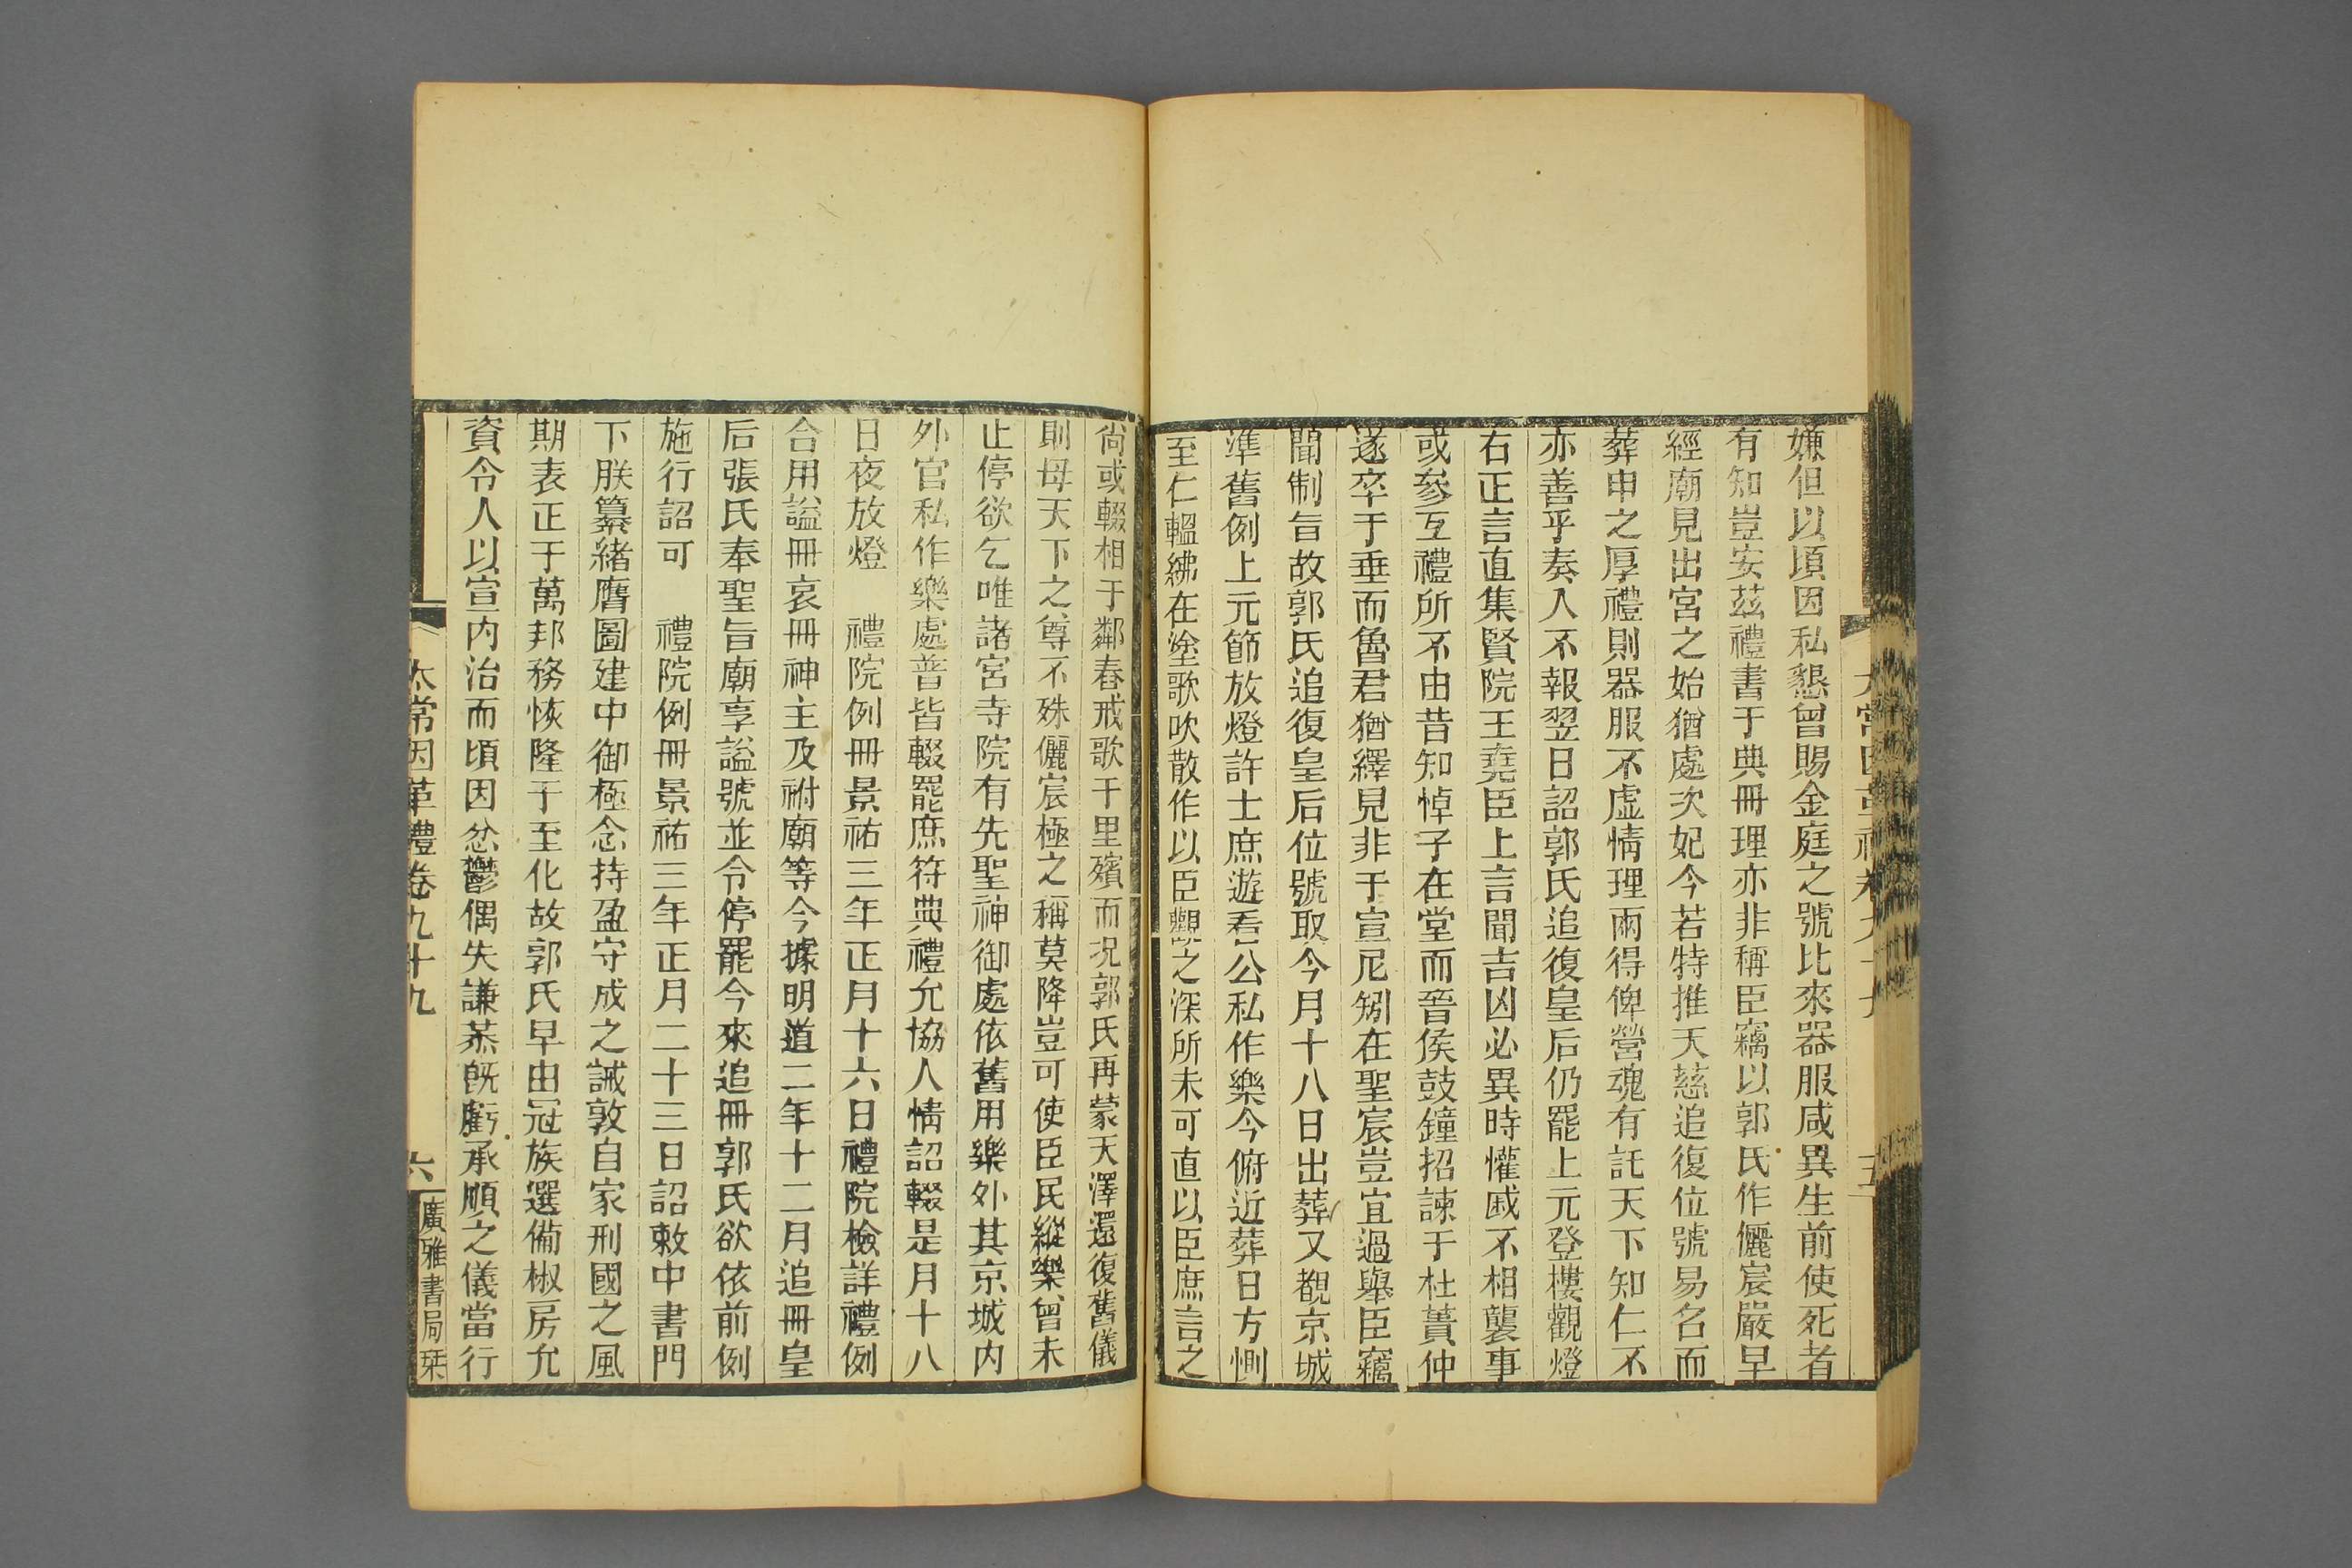 嫌但以頃因私懇曾賜金庭之號比來器服咸異生前使死者
有知豈安茲禮書于典冊理亦非稱臣竊以郭氏作儷宸嚴早
經廟見出宮之始猶處次妃今若特推天慈追復位號易名而
葬申之厚禮則器服不虛情理兩得俾營魂有託天下知仁不
亦善乎奏入不報翌日詔郭氏追復皇后仍罷上元登樓觀燈
右正言直集賢院王堯臣上言聞吉凶必異時懽戚不相襲事
或參互禮所不由昔知悼子在堂而晉侯鼓鐘招諫于杜蕢仲
遂卒于垂而魯君猶繹見非于宣尼矧在聖宸豈宜過舉臣竊
聞制旨故郭氏追復皇后位號取今月十八日出葬又覩京城
準舊例上元節放燈許士庶遊看公私作樂今俯近葬日方惻
至仁轀紼在塗歌吹散作以臣觀之深所未可直以臣庶言之
尙或輟相于鄰舂戒歌于里殯而況郭氏再蒙天澤還復舊儀
則母天下之尊不殊儷宸極之稱莫降豈可使臣民縱樂曾未
止停欲乞唯諸宮寺院有先聖神御處依舊用樂外其京城內
外官私作樂處普皆輟罷庶符典禮允協人情詔輟是月十八
日夜放燈　禮院例冊景祐三年正月十六日禮院檢詳禮例
合用諡冊哀冊神主及祔廟等今據明道二年十二月追冊皇
后張氏奉聖旨廟享諡號並令停罷今來追冊郭氏欲依前例
施行詔可　禮院例冊景祐三年正月二十三日詔敕中書門
下朕纂緒膺圖建中御極念持盈守成之誡敦自家刑國之風
期表正于萬邦務恢隆于至化故郭氏早由冠族選備椒房允
資令人以宣內治而頃因忿鬱偶失謙恭旣虧承順之儀當行
太常因革禮卷九十九
六
廣雅書局栞